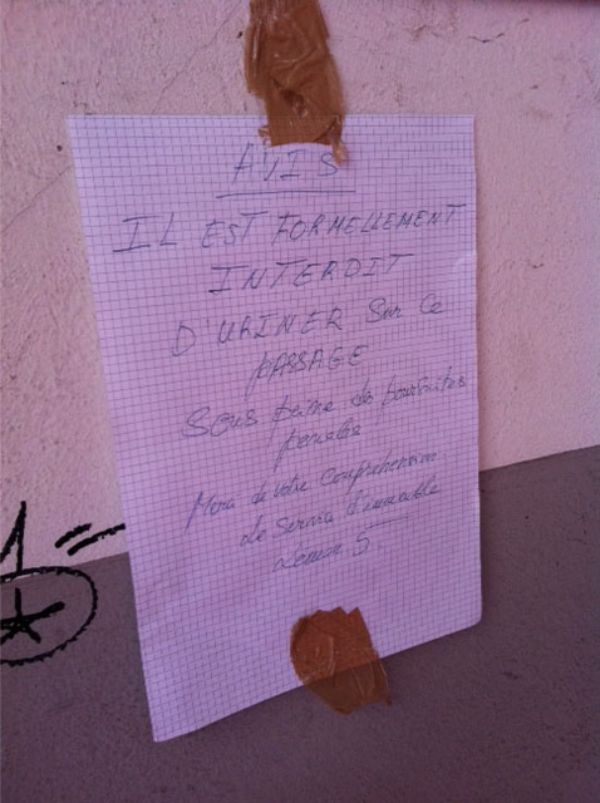 AVIS
IL EST FORMELLEMENT
INTERDIT
D'URINER Sur Ce
PASSAGE
SOUS peine de poursuites
penales
Merci de votre Comprehension
Le Service d'immeuble
S.